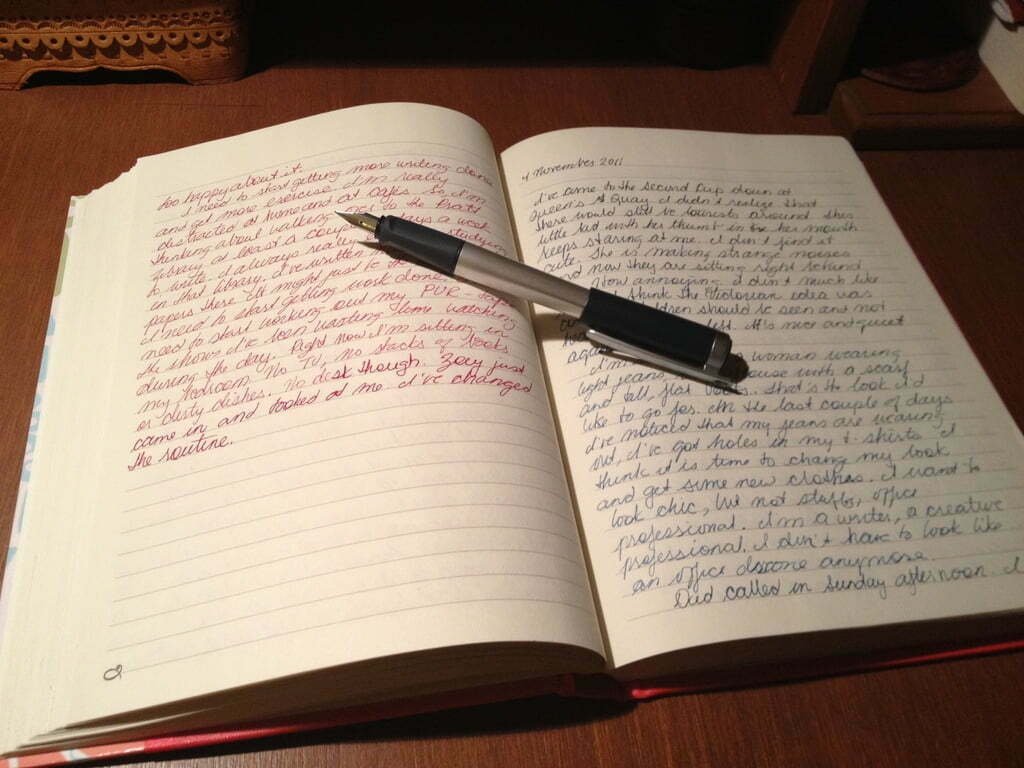 too happy about it.
I need to start getting more writing done
and get more exercise. I'm really
distracted at home and at cafés. So, I'm
thinking about walking to the Pratt
library at least a couple days a week
to write. I always really studying
in that library. I've written
papers there. It might just be
I need to start getting work done.
need to start working out my PVR -
the shows I've been wasting time watching
during the day. Right now I'm sitting in
my bedroom. No TV, no stacks of books
or dirty dishes. No desk though. Zoey just
came in and looked at me. I've changed
the routine.
4 November 2011
I've come to the Second Cup down at
Queen's Quay. I didn't realize that
there would still be tourists around. This
little kid with her thumb in her mouth
keeps staring at me. I don't find it
cute. She is making strange noises
and now they are sitting right behind
Now annoying. I don't much like
think the Victorian idea was
children should be seen and not
left. It's nice and quiet
again
I'm woman wearing
light jeans with a scarf
and tall, flat boots. That's the look I'd
like to go for. In the last couple of days
I've noticed that my jeans are wearing
out, I've got holes in my t-shirts. I
think it is time to change my look
and get some new clothes. I want to
look chic, but not stuffy, office
professional. I'm a writer, a creative
professional. I don't have to look like
an office drone anymore.
Dad called in Sunday afternoon. I